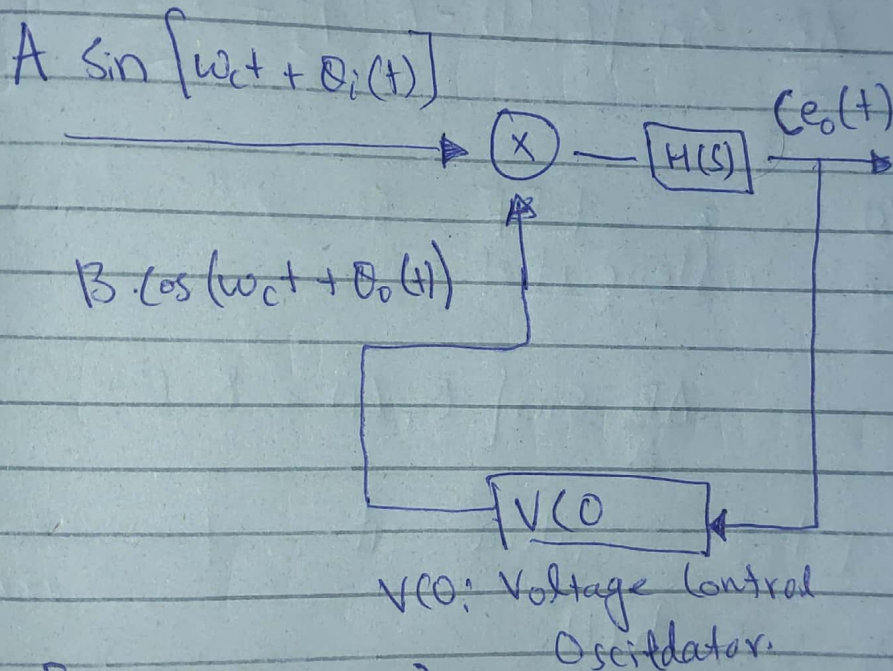 A Sin [ωct + θi(t)]
Ce₀(t)
X
H(S)
B.Cos(ωct + θ₀(t))
VCO
VCO: Voltage Control
Oscitdator.